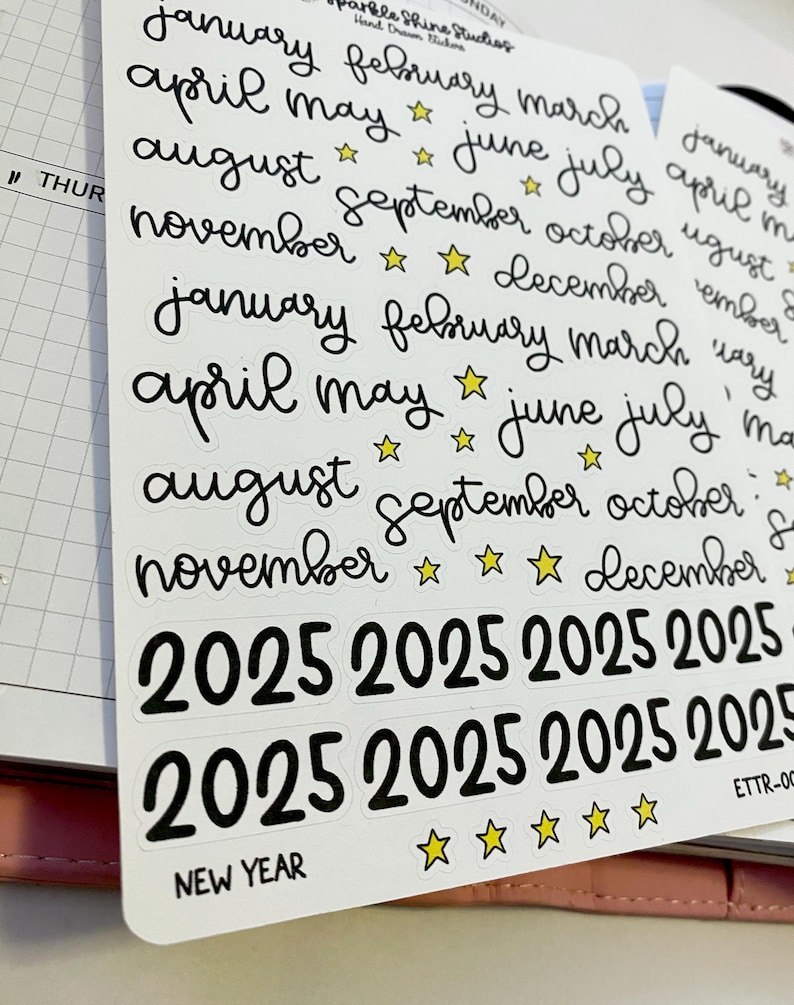 Sparkle Shine Studios
Hand Drawn Stickers
january february march
april may june july
august september october
november december
january february march
april may june july
august september october
november december
2025 2025 2025 2025
2025 2025 2025 2025
NEW YEAR
THUR
january
april